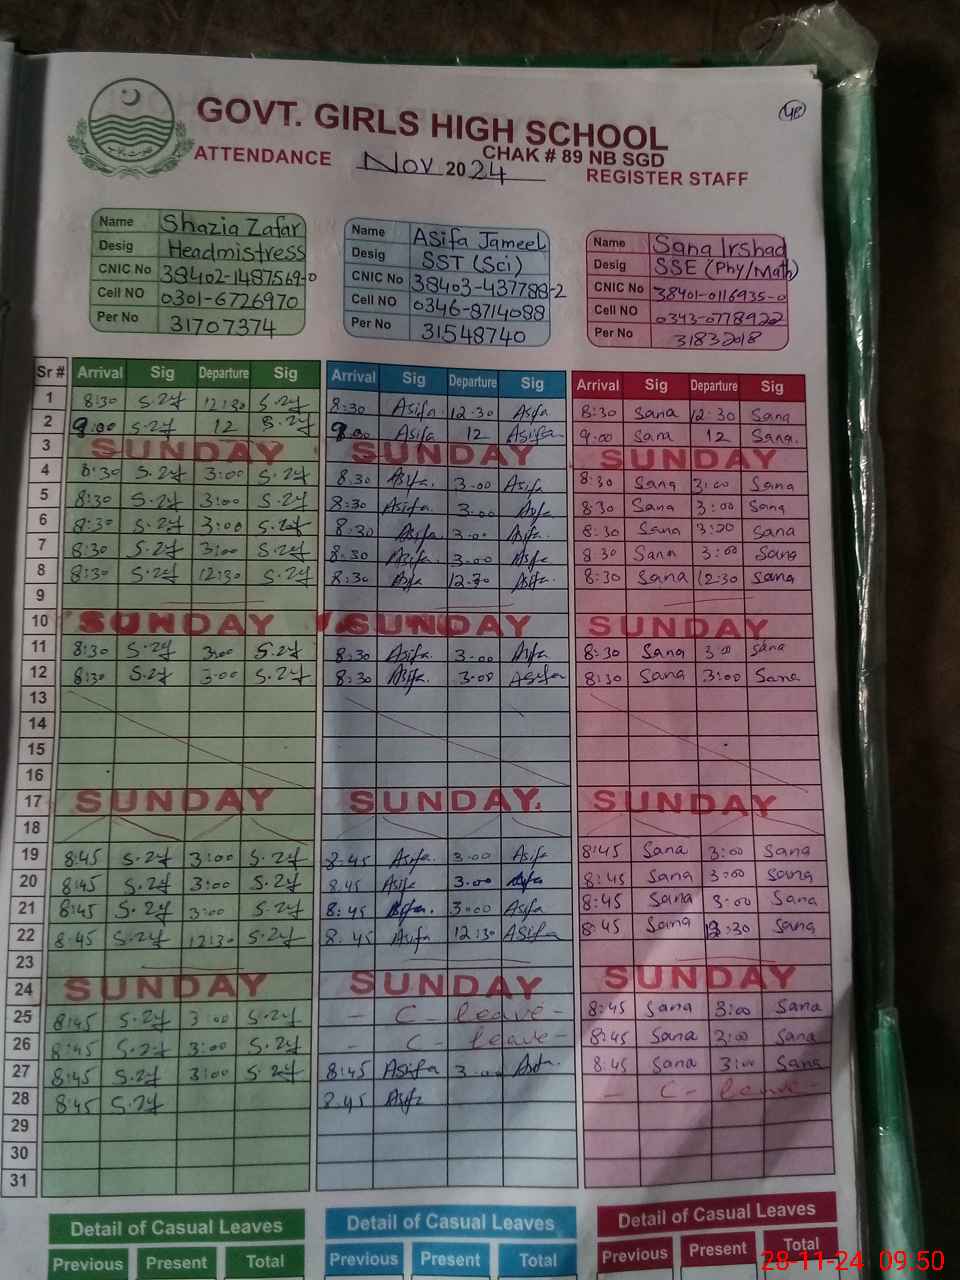 48
GOVT. GIRLS HIGH SCHOOL
CHAK # 89 NB SGD
ATTENDANCE Nov 2024 REGISTER STAFF
Name Shazia Zafar
Desig Headmistress
CNIC No 38402-1487569-0
Cell NO 0301-6726970
Per No 31707374
Name Asifa Jameel
Desig SST (Sci)
CNIC No 38403-437788-2
Cell NO 0346-8714088
Per No 31548740
Name Sana Irshad
Desig SSE (Phy/Math)
CNIC No 38401-0116935-0
Cell NO 0343-0778922
Per No 31832018
Sr # Arrival Sig Departure Sig Arrival Sig Departure Sig Arrival Sig Departure Sig
1 8:30 S.Zf 12:30 S.Zf 8:30 Asifa 12.30 Asfa 8:30 Sana 12:30 Sana
2 9:00 S.Zf 12 S.Zf 9.00 Asifa 12 Asifa 9.00 Sana 12 Sana.
3 SUNDAY SUNDAY SUNDAY
4 8:30 S.Zf 3:00 S.Zf 8.30 Asifa. 3.00 Asifa 8:30 Sana 3:00 Sana
5 8:30 S.Zf 3:00 S.Zf 8:30 Asifa. 3.00 Asfa 8:30 Sana 3:00 Sana
6 8:30 S.Zf 3:00 S.Zf 8:30 Asifa 3.00 Asifa. 8:30 Sana 3:00 Sana
7 8:30 S.Zf 3:00 S.Zf 8.30 Asifa. 3.00 Asifa 8:30 Sana 3:00 Sana
8 8:30 S.Zf 12:30 S.Zf 8:30 Asifa 12.30 Asifa. 8:30 Sana 12:30 Sana
9
10 SUNDAY SUNDAY SUNDAY
11 8:30 S.Zf 3:00 S.Zf 8:30 Asifa. 3.00 Asifa 8:30 Sana 3:00 Sana
12 8:30 S.Zf 3:00 S.Zf 8:30 Asifa. 3.00 Asifa 8:30 Sana 3:00 Sana
13
14
15
16
17 SUNDAY SUNDAY SUNDAY
18
19 8:45 S.Zf 3:00 S.Zf 8.45 Asifa. 3.00 Asifa 8:45 Sana 3:00 Sana
20 8:45 S.Zf 3:00 S.Zf 8.45 Asifa 3.00 Asifa 8:45 Sana 3:00 Sana
21 8:45 S.Zf 3:00 S.Zf 8:45 Asifa. 3.00 Asifa 8:45 Sana 3:00 Sana
22 8:45 S.Zf 12:30 S.Zf 8.45 Asifa 12:30 ASifa 8:45 Sana 12:30 Sana
23
24 SUNDAY SUNDAY SUNDAY
25 8:45 S.Zf 3:00 S.Zf - C- leave - 8:45 Sana 3:00 Sana
26 8:45 S.Zf 3:00 S.Zf - C- leave - 8:45 Sana 3:00 Sana
27 8:45 S.Zf 3:00 S.Zf 8:45 Asifa 3.00 Asfa. 8:45 Sana 3:00 Sana
28 8:45 S.Zf 8.45 Asifa - C- leave -
29
30
31
Detail of Casual Leaves Detail of Casual Leaves Detail of Casual Leaves
Previous Present Total Previous Present Total Previous Present Total
28-11-24 09:50